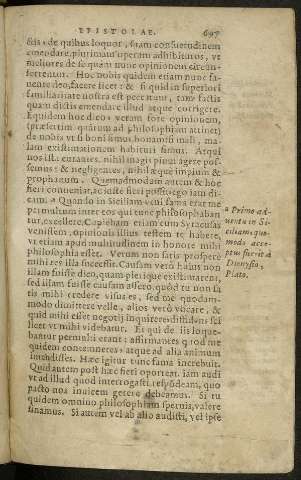 EPISTOLAE. 697
ſtis, de quibus loquor, ſtram conſuetudinem
emendare, plurimam operam adhibuiſtis, vt
meliores de ſe quàm nunc opinionem circun-
ferrentur. Hoc nobis quidem etiam nunc fa-
uente deo, facere licet: & ſi quid in ſuperiori
familiaritate noſtra eſt peccatum, tam factis
quàm dictis emendare illud atque corrigere.
Equidem hoc dico: veram fore opinionem,
(præſertim quantum ad philoſophiam attinet)
de nobis vt ſi boni ſimus, bonam: ſi mali, ma-
lam exiſtimationem habituri ſimus. Atqui
nos iſta curantes, nihil magis pium agere poſ-
ſemus: & negligentes, nihil æque impium &
prophanum. Quemadmodum autem & hoc
fieri conueniat, ac iuſte fieri poſſit, ego iam di-
cam. a Quando in Siciliam veni, fama erat me
permultum inter eos qui tunc philoſophaban
tur, excellere. Capiebam etiam cum Syracuſas
veniſſem, opinionis illius teſtem te habere,
vt etiam apud multitudinem in honore mihi
philoſophia eſſet. Verum non ſatis proſpere
mihi res illa ſucceſſit. Cauſam verò huius non
illam fuiſſe dico, quam pleriq́ue exiſtimarent,
ſed illam fuiſſe cauſam aſſero, quòd tu non ſa
tis mihi credere viſus es, ſed me quodam-
modo dimittere velle, alios verò vocare, &
quid mihi eſſet negotij inquirere: diffidens, ſci
licet vt mihi videbatur. Et qui de iis loque-
bantur permulti erant: affirmantes quod me
quidem contemneres, atque ad alia animum
induxiſſes. Hæc igitur tunc fama increbuit.
Quid autem poſt hæc fieri oporteat, iam audi
vt ad illud quod interrogaſti, reſpōdeam, quo
pacto nos inuicem gerere debeamus. Si tu
quidem omnino philoſophiam ſpernis, valere
ſinamus. Si autem vel ab alio audiſti, vel ipſe
a Primo ad-
uentu in Si-
ciliam, quo-
modo acce-
ptus fuerit à
Dionyſio,
Plato.